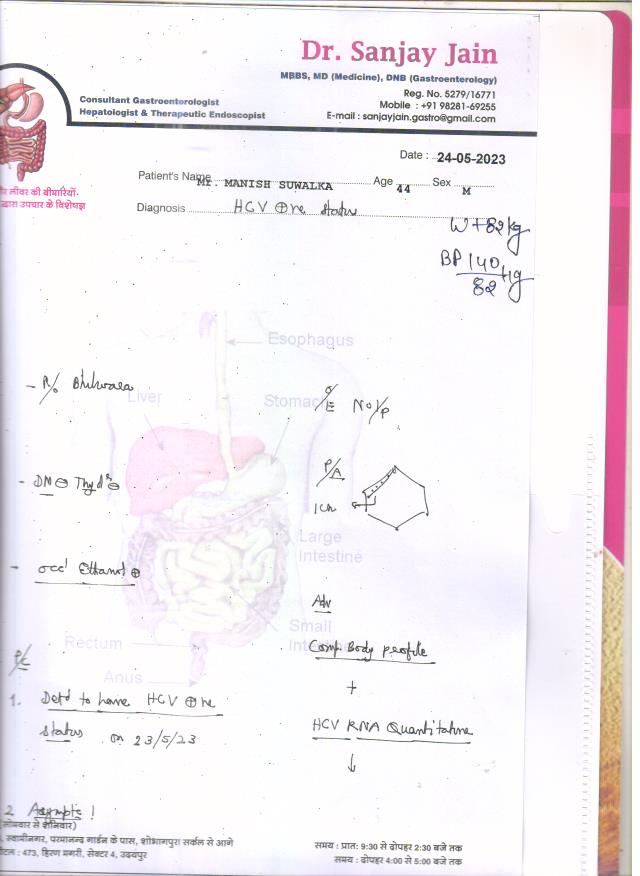 Dr. Sanjay Jain
MBBS, MD (Medicine), DNB (Gastroenterology)
Reg. No. 5279/16771
Mobile : +91 98281-69255
E-mail : sanjayjain.gastro@gmail.com
Consultant Gastroenterologist
Hepatologist & Therapeutic Endoscopist
र लीवर की बीमारियों-
द्वारा उपचार के विशेषज्ञ
Date : 24-05-2023
Patient's Name Mr. MANISH SUWALKA Age 44 Sex M
Diagnosis HCV ⊕ve status
Wt 82kg
BP 140/82 Hg
Esophagus
Liver
Stomach
Large
Intestine
Small
Intestine
Rectum
Anus
- R/o Bhilwara
- DM ⊖ Thyd ⊖
- occ' Ethanol ⊕
P/C
1. Det'd to have HCV ⊕ve
status on 23/5/23
2 Asympt !
O/E No/P
P/A
1cm
Adv
Comp. Body profile
+
HCV RNA Quantitative
↓
(सोमवार से शनिवार)
, स्वामीनगर, परमानन्द गार्डन के पास, शोभागपुरा सर्कल से आगे
टल : 473, हिरण मगरी, सेक्टर 4, उदयपुर
समय : प्रात: 9:30 से दोपहर 2:30 बजे तक
समय : दोपहर 4:00 से 5:00 बजे तक